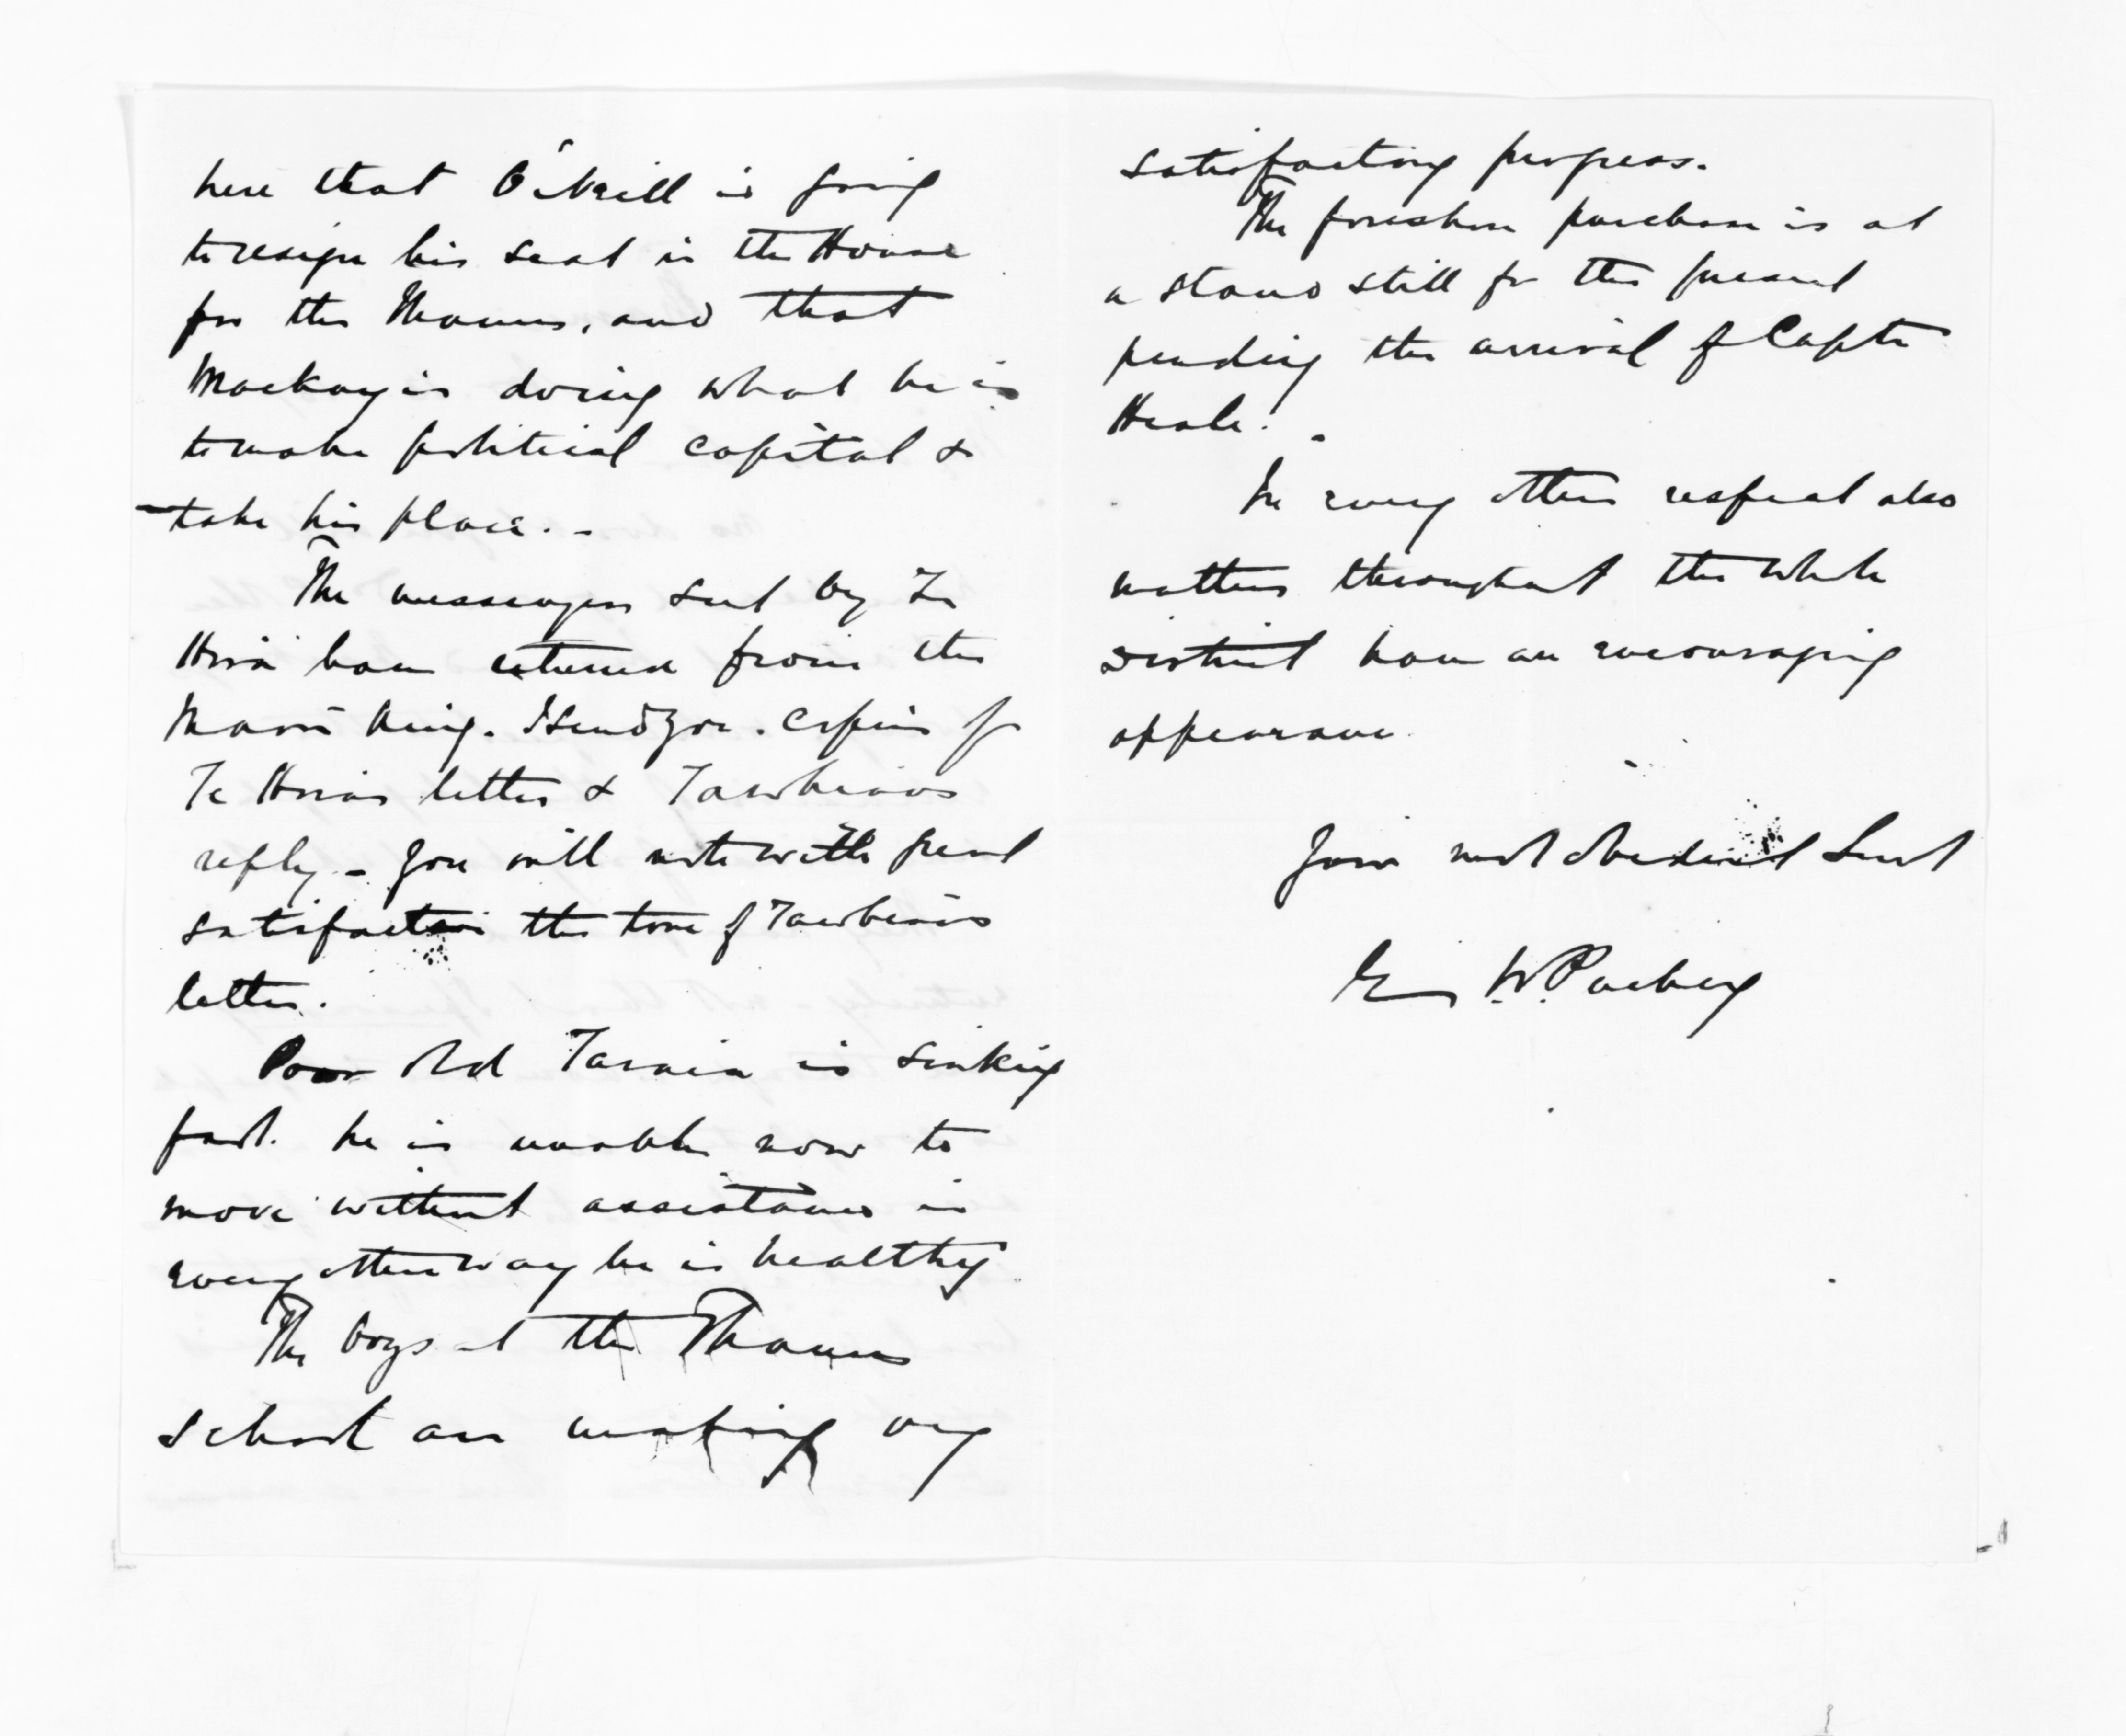 here that O'Neill is going
to resign his seat in the House
for the Thames, and that
Mackay is doing what he is
to make political capital &
take his place. -
The messengers sent by Te
Hira have returned from the
Maori King. I send you copies of
Te Hiras letter & Tawhiaos
reply - you will note with great
satisfaction the tone of Tawhiaos
letter.
Poor old Taraia is sinking
fast. he is unable now to
move without assistance in
every other way he is healthy
The boys at the Thames
school are making very
satisfactory progress.
The foreshore purchase is at
a stand still for the present
pending the arrival of Captn
Heale.
In every other respect also
matters throughout the whole
District have an encouraging
appearance.
Your most obedient Servt
W. Puckey